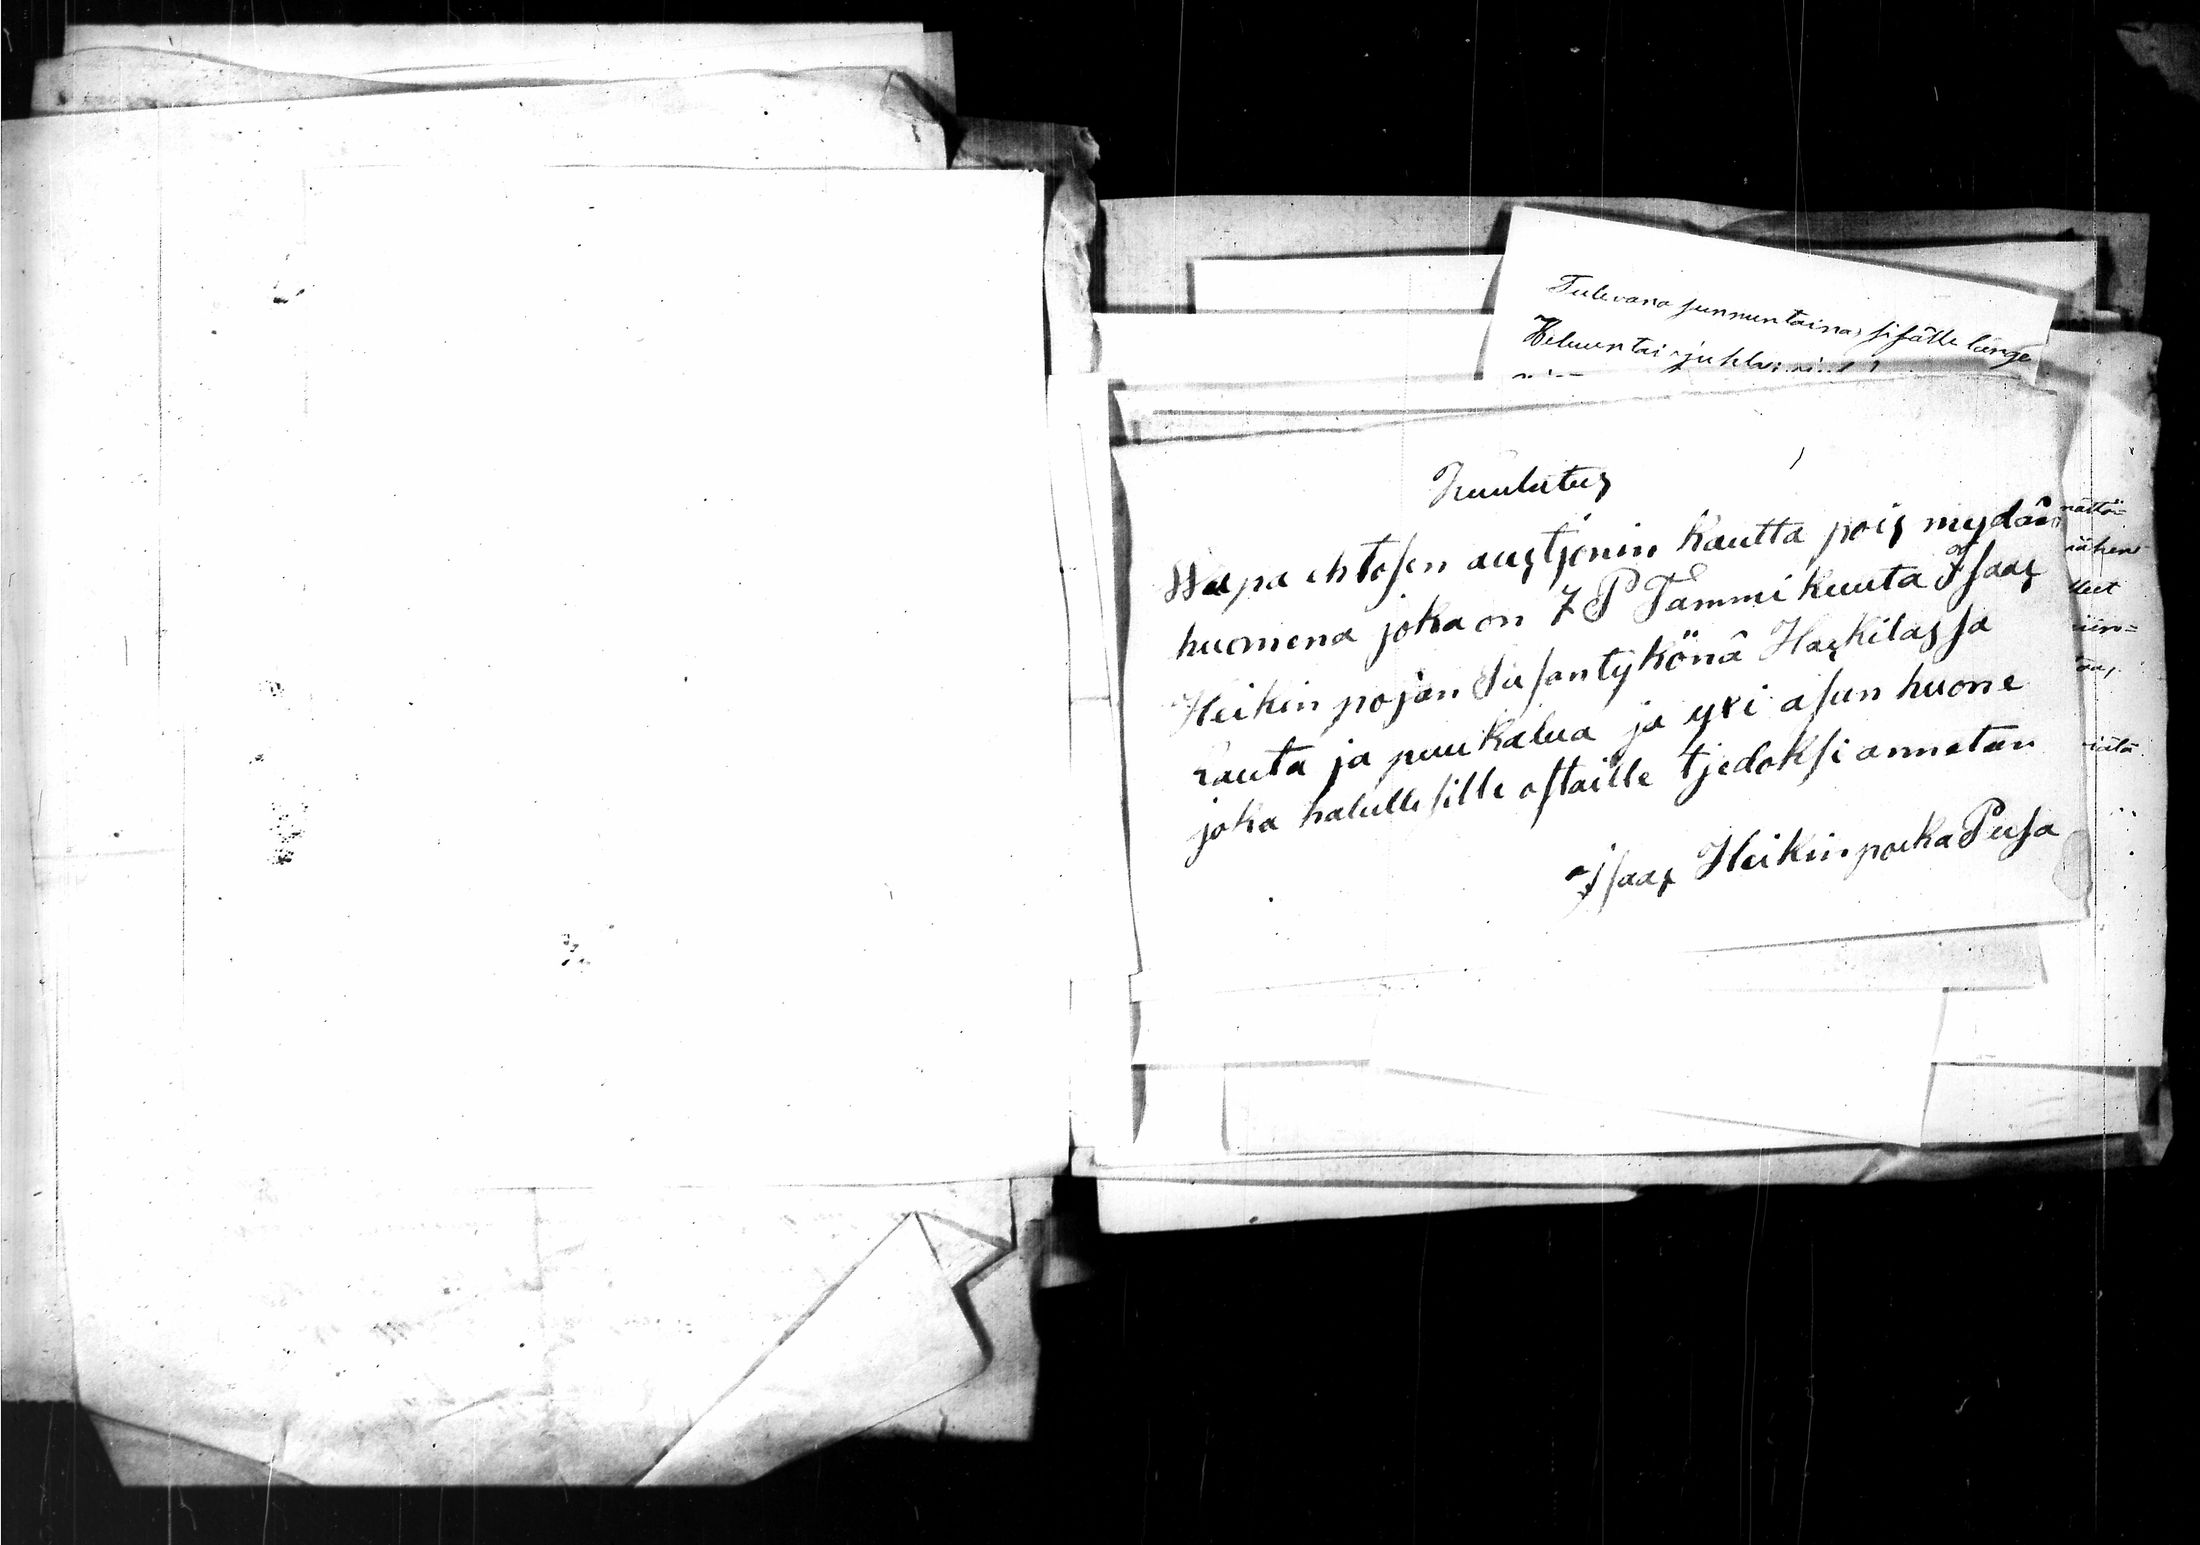 Tulevana sunnuntaina,
Heluuntai-juhla
Kuulutus
Wapa ehtosen auxtjonin kautta pois mydän
huomena joka on 7 P Tammi kuuta Isaax
Heikin pojan Pusan tykönä Haxkilassa
rauta ja puu kalua ja yxi asun huone
joka halullisille ostaille tjedoksi annetan
Isaax Heikinpoika Pusa